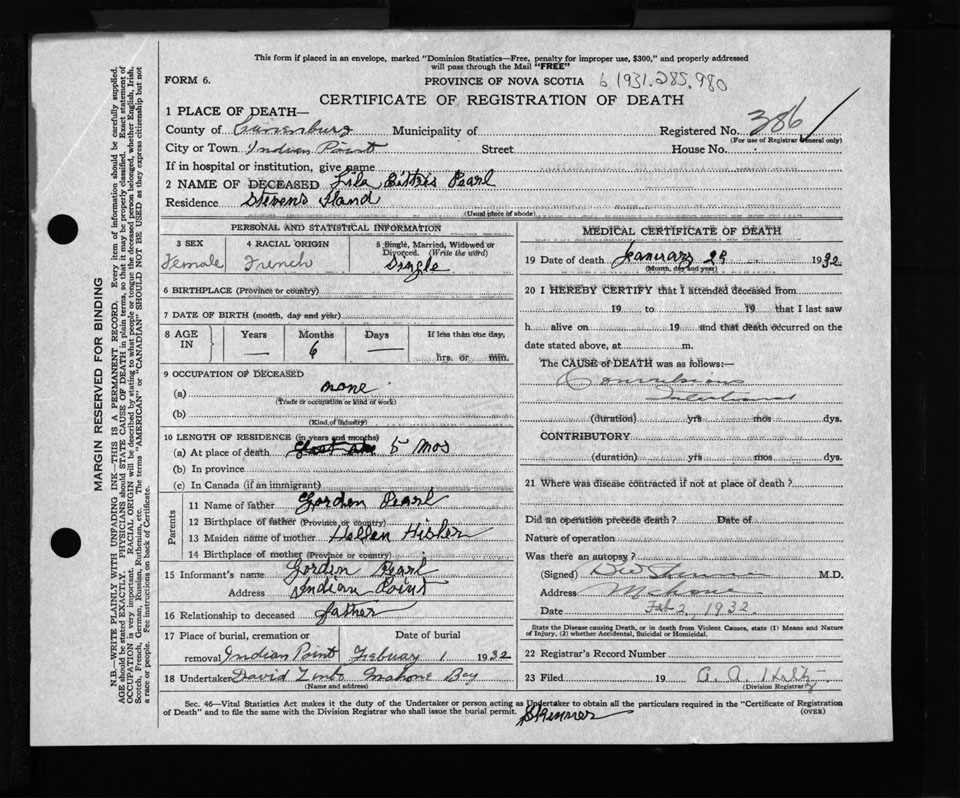 This form if placed in an envelope, marked "Dominion Statistics—Free, penalty for improper use, $300," and properly addressed
will pass through the Mail "FREE"
FORM 6.
PROVINCE OF NOVA SCOTIA 6 1931.285.980
CERTIFICATE OF REGISTRATION OF DEATH
1 PLACE OF DEATH—
County of Lunenburg Municipality of Registered No. 386
(For use of Registrar General only)
City or Town Indian Point Street House No.
If in hospital or institution, give name
2 NAME OF DECEASED Lila Bittris Pearl
Residence Stevens Iland
(Usual place of abode)
PERSONAL AND STATISTICAL INFORMATION
3 SEX 4 RACIAL ORIGIN 5 Single, Married, Widowed or Divorced. (Write the word)
Female French Single
6 BIRTHPLACE (Province or country)
7 DATE OF BIRTH (month, day and year)
8 AGE IN Years Months Days If less than one day,
— 6 — hrs. or min.
9 OCCUPATION OF DECEASED
(a) none
(Trade or occupation or kind of work)
(b)
(Kind of industry)
10 LENGTH OF RESIDENCE (in years and months)
(a) At place of death 5 mos
(b) In province
(c) In Canada (if an immigrant)
Parents
11 Name of father Gorden Pearl
12 Birthplace of father (Province or country)
13 Maiden name of mother Hellen Hisler
14 Birthplace of mother (Province or country)
15 Informant's name Gordin Pearl
Address Indian Point
16 Relationship to deceased father
17 Place of burial, cremation or removal Indian Point Date of burial Febuary 1 1932
18 Undertaker David Zinto Mahone Bay
(Name and address)
MEDICAL CERTIFICATE OF DEATH
19 Date of death January 29 1932
(Month, day and year)
20 I HEREBY CERTIFY that I attended deceased from
19 to 19 that I last saw
h alive on 19 and that death occurred on
date stated above, at m.
The CAUSE of DEATH was as follows:—
Convulsions
Intestional
(duration) yrs mos dys.
CONTRIBUTORY
(duration) yrs mos dys.
21 Where was disease contracted if not at place of death?
Did an operation precede death? Date of
Nature of operation
Was there an autopsy?
(Signed) M.D.
Address Mahone
Date Feb 2, 1932
State the Disease causing Death, or in death from Violent Causes, state (1) Means and Nature
of Injury, (2) whether Accidental, Suicidal or Homicidal.
22 Registrar's Record Number
23 Filed 19 A. A. Hiltz
(Division Registrar)
Sec. 46—Vital Statistics Act makes it the duty of the Undertaker or person acting as Undertaker to obtain all the particulars required in the "Certificate of Registration
of Death" and to file the same with the Division Registrar who shall issue the burial permit. Skinner (OVER)
MARGIN RESERVED FOR BINDING
N.B.—WRITE PLAINLY WITH UNFADING INK—THIS IS A PERMANENT RECORD. Every item of information should be carefully supplied.
AGE should be stated EXACTLY. PHYSICIANS should STATE CAUSE OF DEATH in plain terms, so that it may be properly classified. Exact statement of
OCCUPATION is very important. RACIAL ORIGIN will be described by stating to what people or tongue the deceased person belonged, whether English, Irish,
Scotch, French, German, Russian, Ruthenian, etc. The terms "AMERICAN" or "CANADIAN" SHOULD NOT BE USED as they express citizenship but not
a race or people. Fee instructions on back of Certificate.